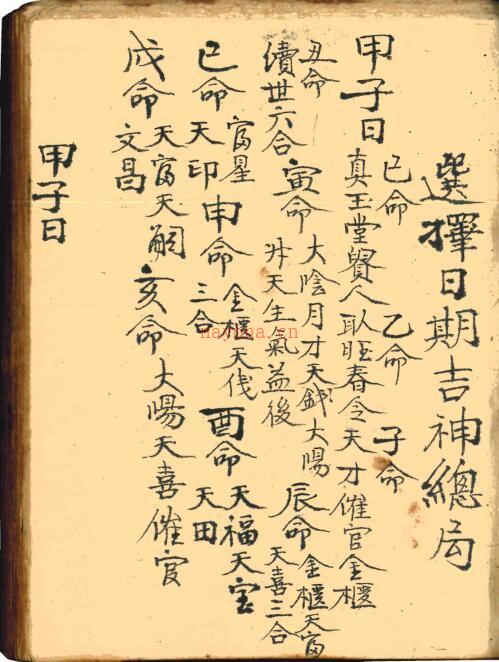 選擇日期吉神總局
甲子日
已命 乙命 子命
真玉堂貴人 旺春令天才催官金櫃
丑命
續世六合
寅命
大陰月才天錢大陽
升天生氣益後
辰命
金櫃天富
天喜三合
已命
富星
天印
申命
金櫃天伐
三合
酉命
天福天宝
天田
成命
天富天嗣
文昌
亥命
大陽天喜催官
甲子日